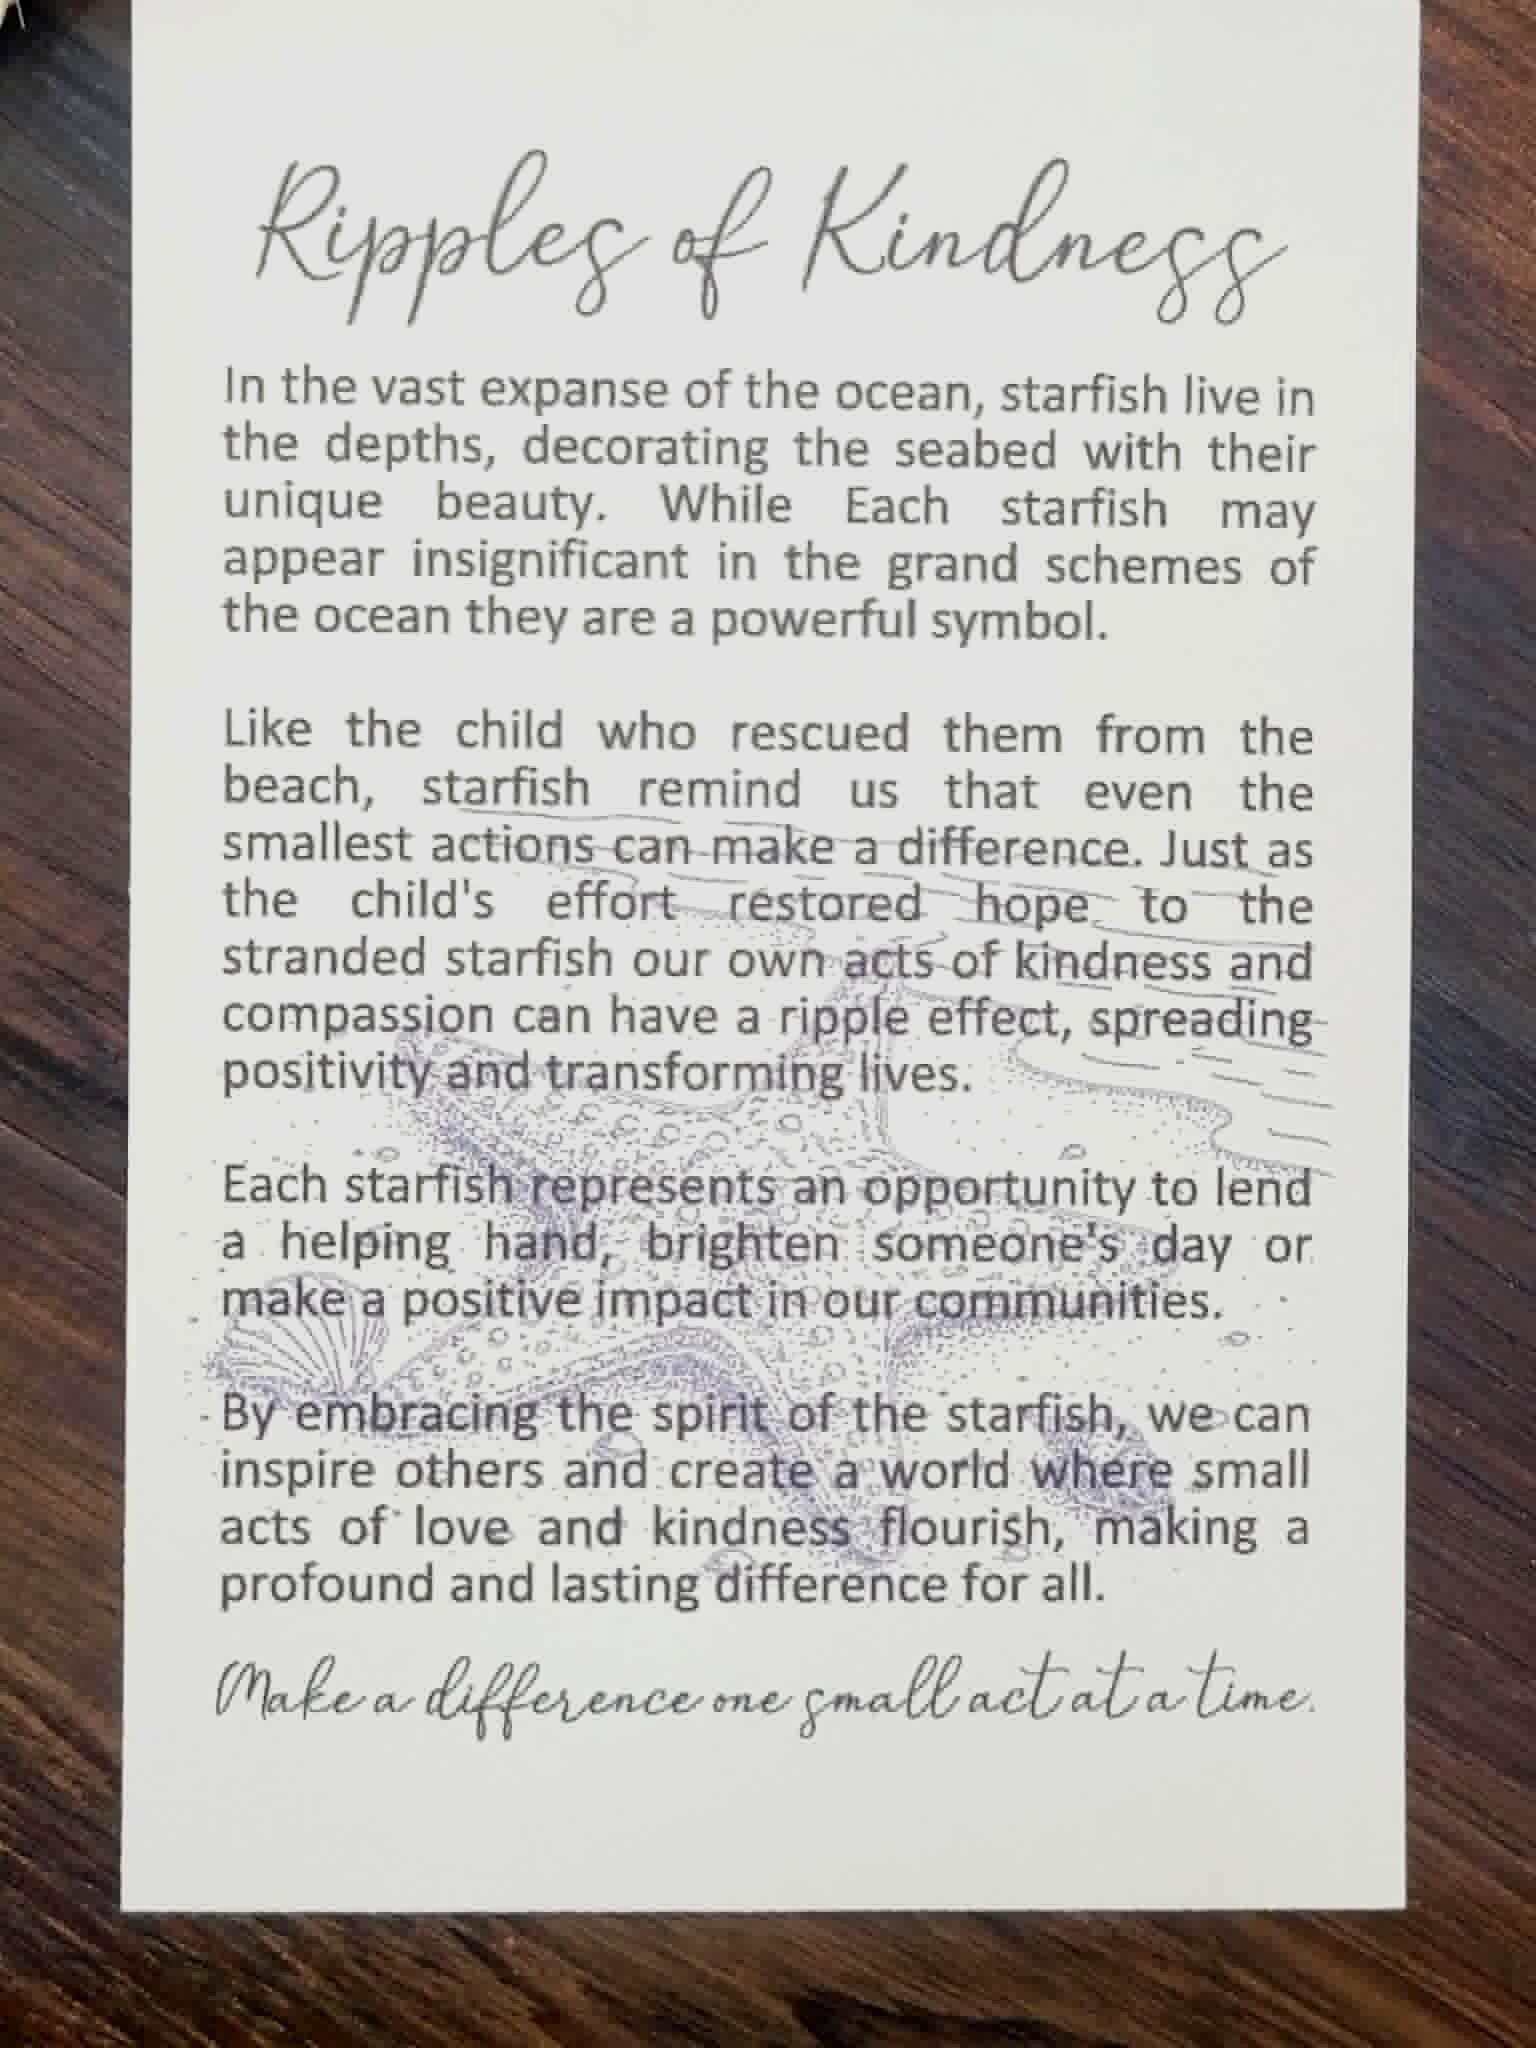 Ripples of Kindness
In the vast expanse of the ocean, starfish live in
the depths, decorating the seabed with their
unique beauty. While Each starfish may
appear insignificant in the grand schemes of
the ocean they are a powerful symbol.
Like the child who rescued them from the
beach, starfish remind us that even the
smallest actions can make a difference. Just as
the child's effort restored hope to the
stranded starfish our own acts of kindness and
compassion can have a ripple effect, spreading
positivity and transforming lives.
Each starfish represents an opportunity to lend
a helping hand, brighten someone's day or
make a positive impact in our communities.
By embracing the spirit of the starfish, we can
inspire others and create a world where small
acts of love and kindness flourish, making a
profound and lasting difference for all.
Make a difference one small act at a time.